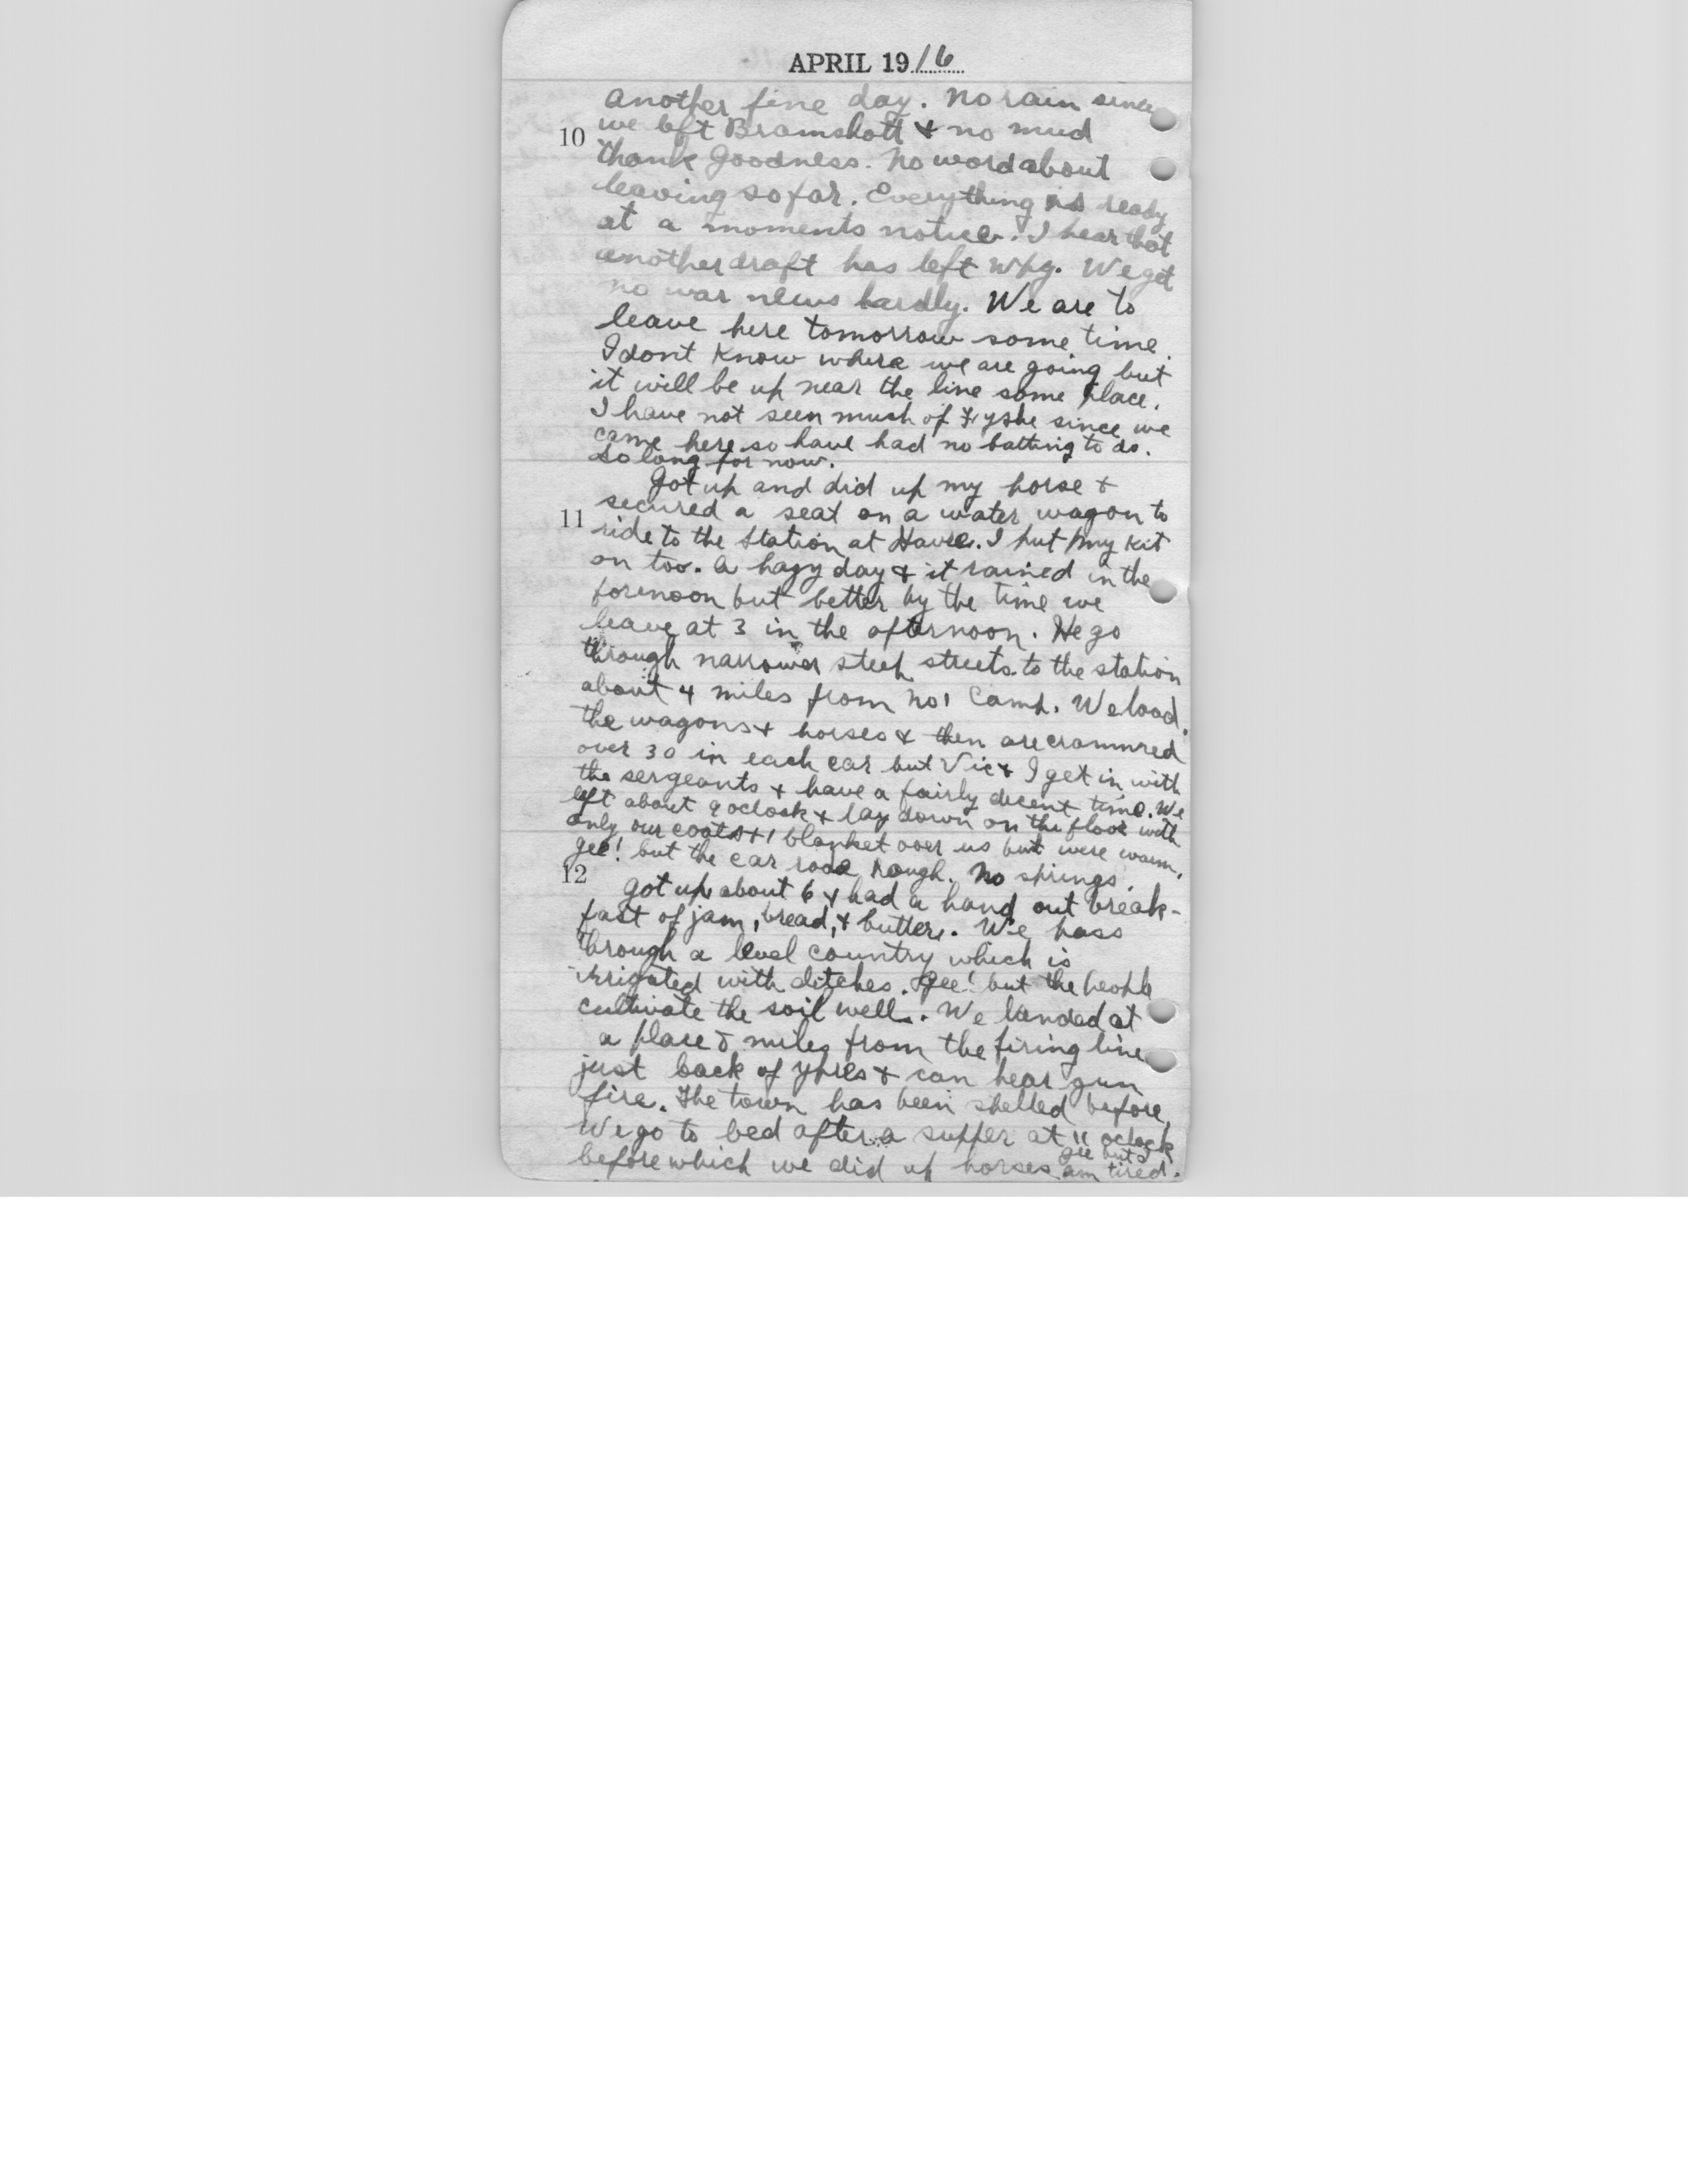 APRIL 1916
Another fine day. No rain since
10 we left Bramshott & no mud
thank goodness. No word about
leaving so far. Everything is ready
at a moments notice. I hear that
another draft has left Wpg. We get
no war news hardly. We are to
leave here tomorrow some time.
I dont know where we are going but
it will be up near the line some place.
I have not seen much of since we
came here so have had no batting to do.
So long for now.
Got up and did up my horse &
secured a seat on a water wagon to
11 ride to the station at Havre. I put my kit
on too. A hazy day & it rained in the
forenoon but better by the time we
leave at 3 in the afternoon. We go
through narrower steep streets to the station
about 4 miles from No 1 Camp. We load
the wagons & horses & then are crammred
over 30 in each car but Vic & I get in with
the sergeants & have a fairly decent time. We
left about 9 oclock & lay down on the floor with
only our coats & 1 blanket over us but were warm.
gee! but the car rode rough. No springs.
12 Got up about 6 & had a hand out break-
fast of jam, bread, & butter. We pass
through a level country which is
irrigated with ditches. Gee! but the people
cultivate the soil well. We landed at
a place miles from the firing line
just back of Ypres & can hear gun
fire. The town has been shelled before.
We go to bed after a supper at 11 oclock
before which we did up horses. gee but I
am tired.